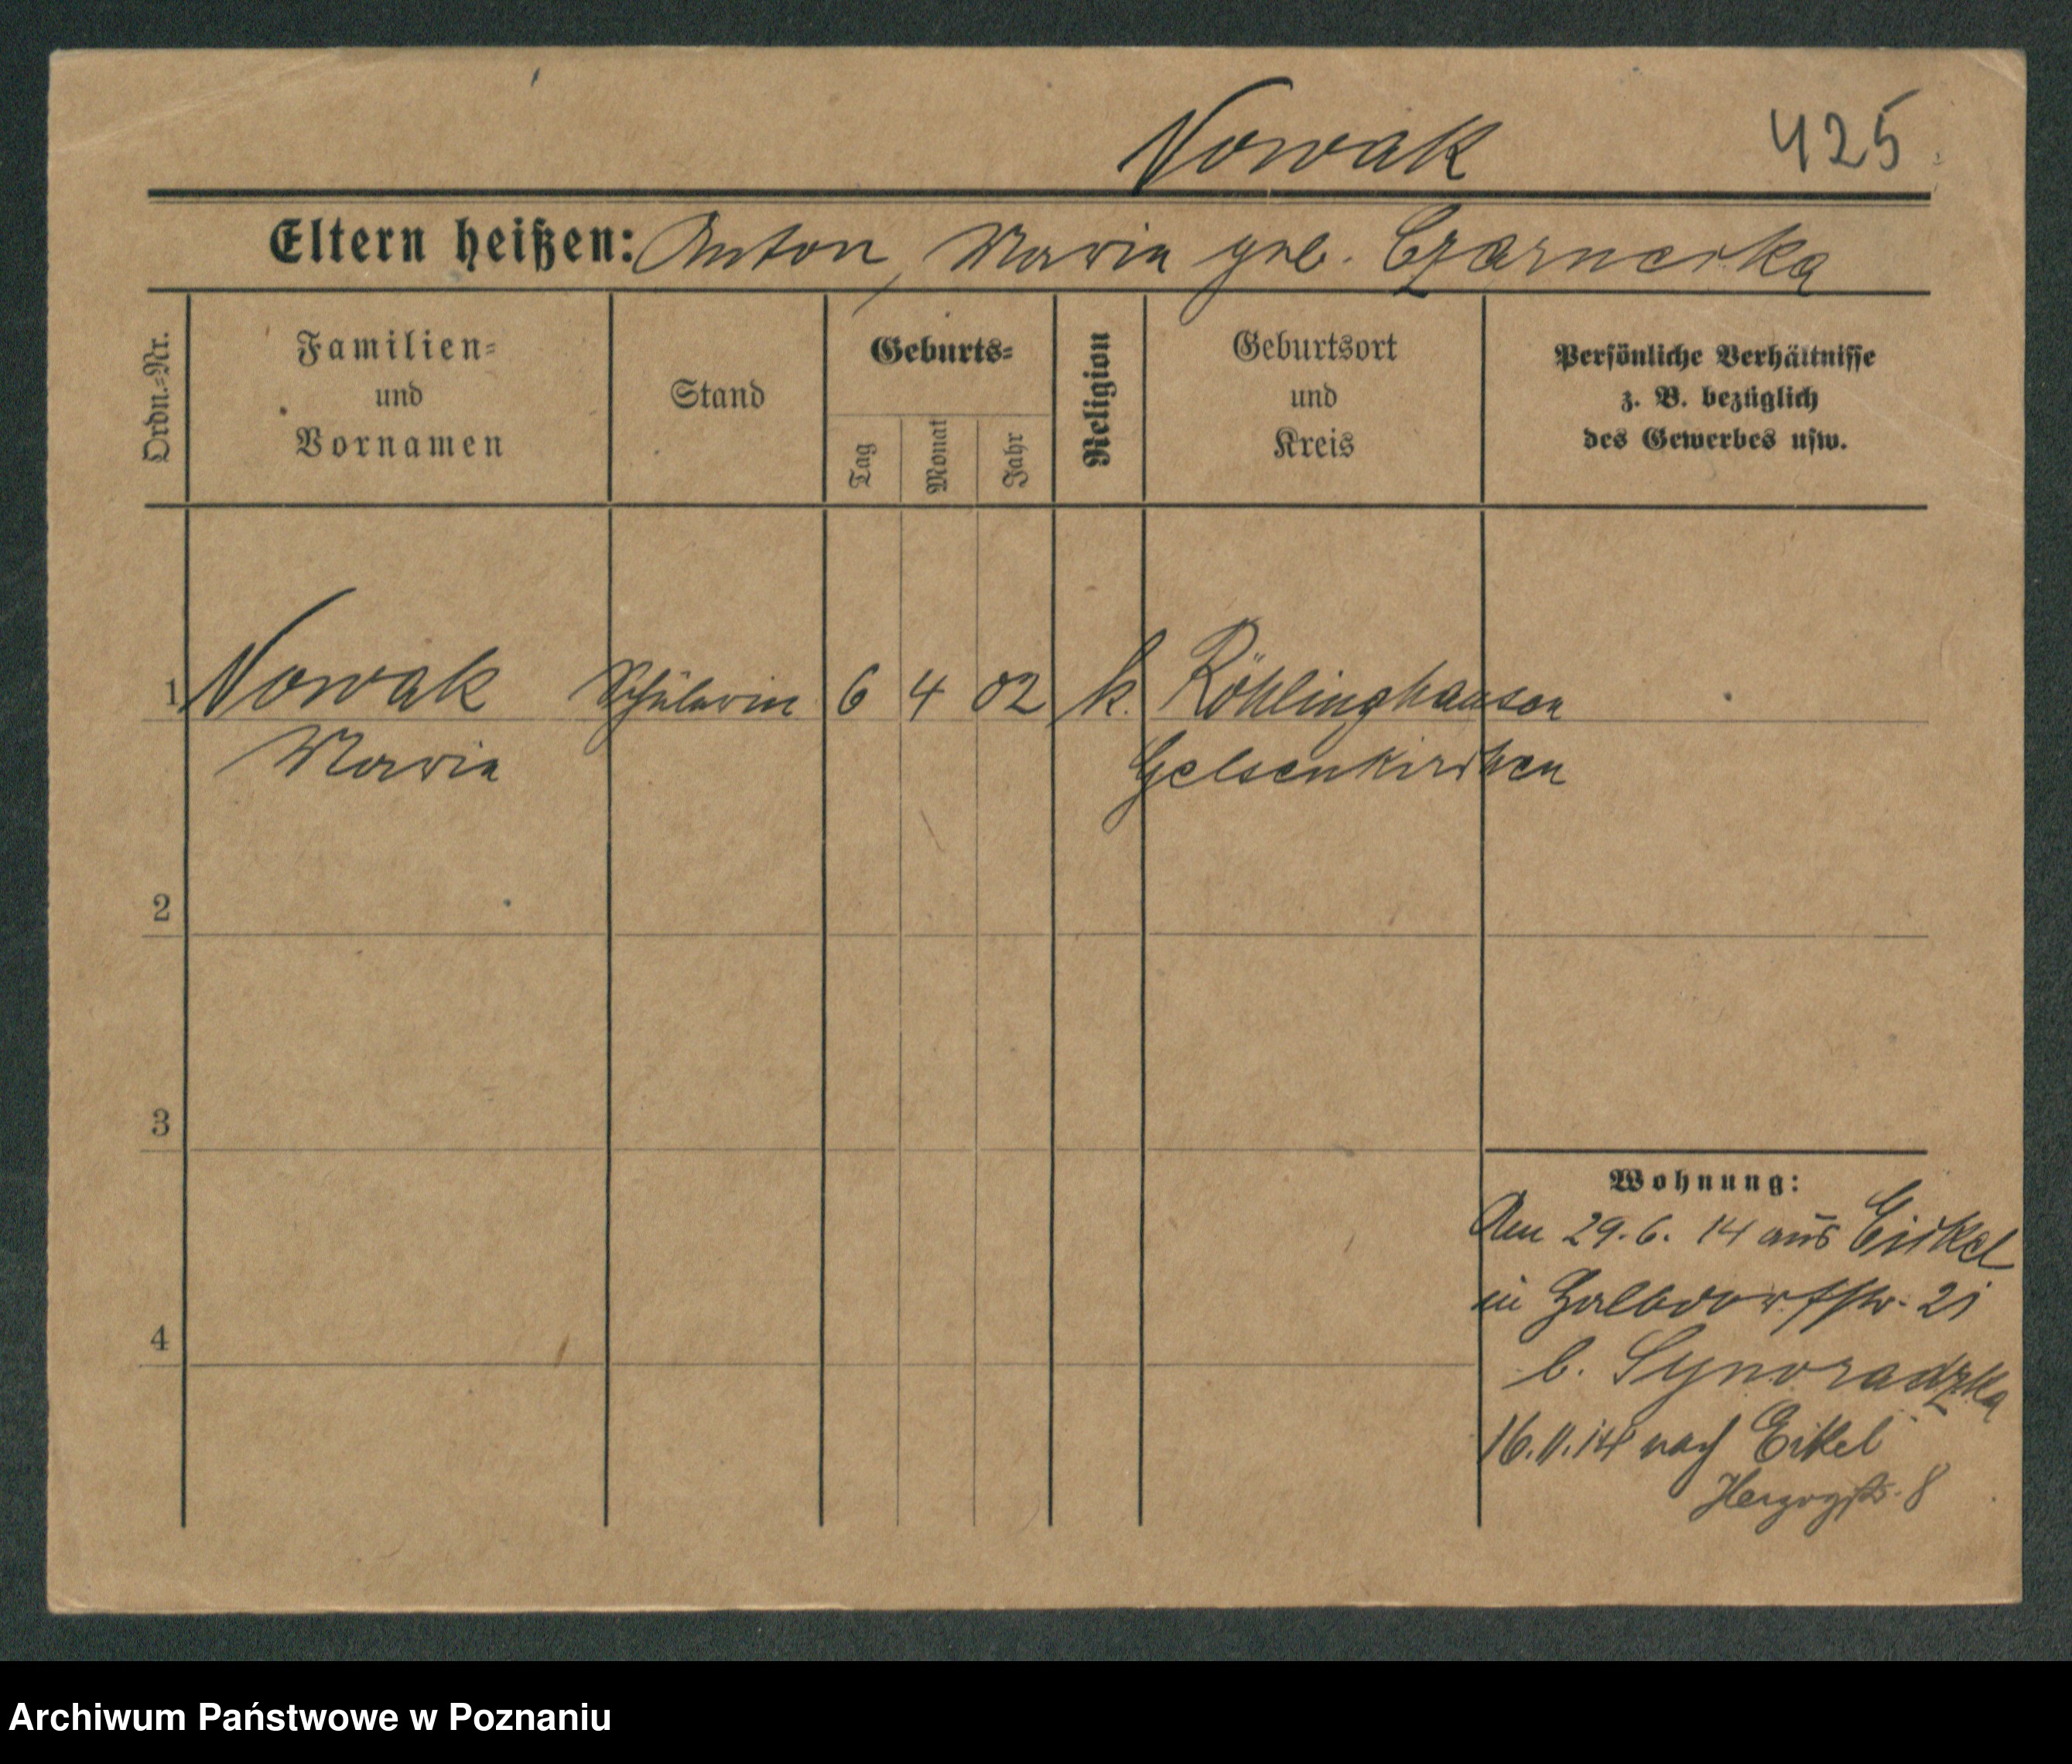 Nowak 425.
Eltern heißen: Anton, Maria geb. Czarnecka
Ordn.=Nr.
Familien=
und
Vornamen
Stand
Geburts=
Tag
Monat
Jahr
Religion
Geburtsort
und
Kreis
Persönliche Verhältnisse
z. B. bezüglich
des Gewerbes usw.
1 Nowak Schülerin 6 4 02 k. Röhlinghausen
Maria Gelsenkirchen
2
3
4
Wohnung:
Am 29.6.14 aus Eickel
in 21
b. Synoradzka
16.11.14 nach Eikel
Herzogstr. 8
Archiwum Państwowe w Poznaniu